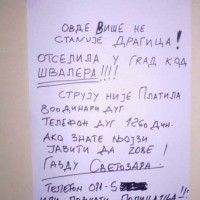 ОВДЕ ВИШЕ НЕ
СТАНУЈЕ ДРАГИЦА!
ОТСЕЛИЛА У ГРАД КОД
ШВАЛЕРА!!!
СТРУЈУ НИЈЕ ПЛАТИЛА
800 ДИНАРИ ДУГ.
ТЕЛЕФОН ДУГ 1260 ДИН.
АКО ЗНАТЕ ЊОЈЗИ
ЈАВИТИ ДА ЗОВЕ!
ГАЗДУ СВЕТОЗАРА.
ТЕЛЕФОН 011-5
ИЛИ